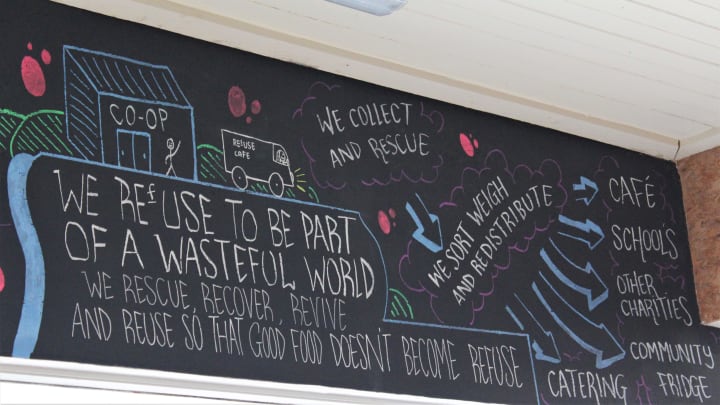 CO-OP
REfUSE
CAFE
WE COLLECT
AND RESCUE
WE SORT WEIGH
AND REDISTRIBUTE
CAFÉ
SCHOOLS
OTHER
CHARITIES
COMMUNITY
FRIDGE
CATERING
WE REfUSE TO BE PART
OF A WASTEFUL WORLD
WE RESCUE, RECOVER, REVIVE
AND REUSE SO THAT GOOD FOOD DOESN'T BECOME REFUSE